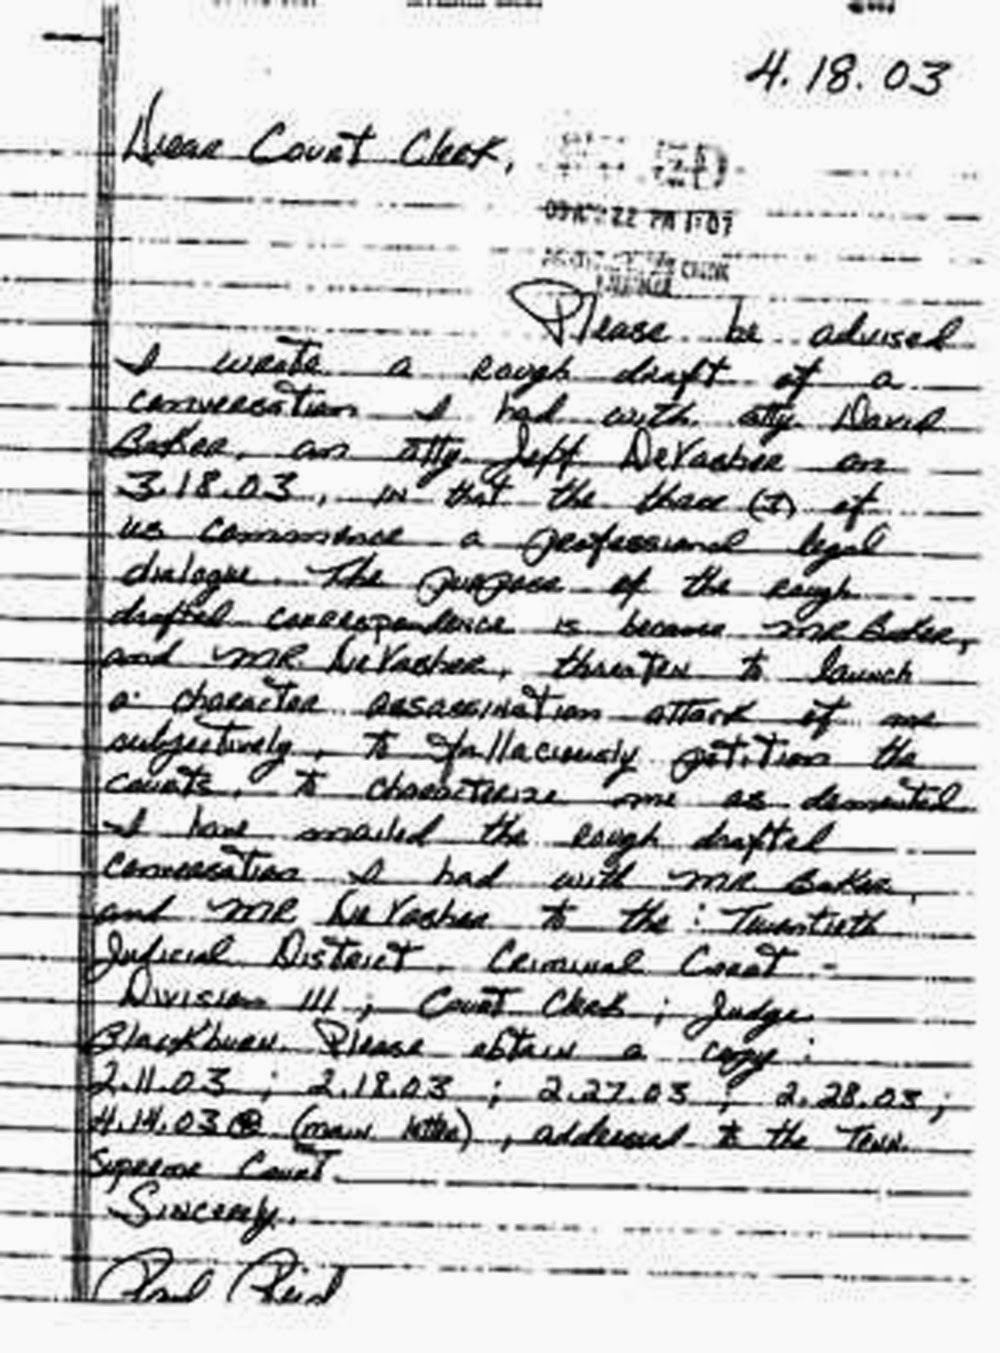 4.18.03
Dear Court Clerk,
22 PM 1:07
Please be advised
I wrote a rough draft of a
conversation I had with atty. David
Baker, an atty. Jeff DeVasher on
3.18.03, in that the three (3) of
us commence a professional legal
dialogue. The purpose of the rough
drafted correspondence is because MR Baker,
and MR. DeVasher, threaten to launch
a character assassination attack of me
subjectively, to fallaciously petition the
courts, to characterize me as demented
I have mailed the rough drafted
conversation I had with MR Baker,
and MR DeVasher to the: Twentieth
Judicial District, Criminal Court -
Division III; Court Clerk; Judge
Blackburn. Please obtain a copy:
2.11.03; 2.18.03; 2.27.03; 2.28.03;
4.14.03 @ (main letter), addressed to the Tenn.
Supreme Court.
Sincerely,
Paul Reid